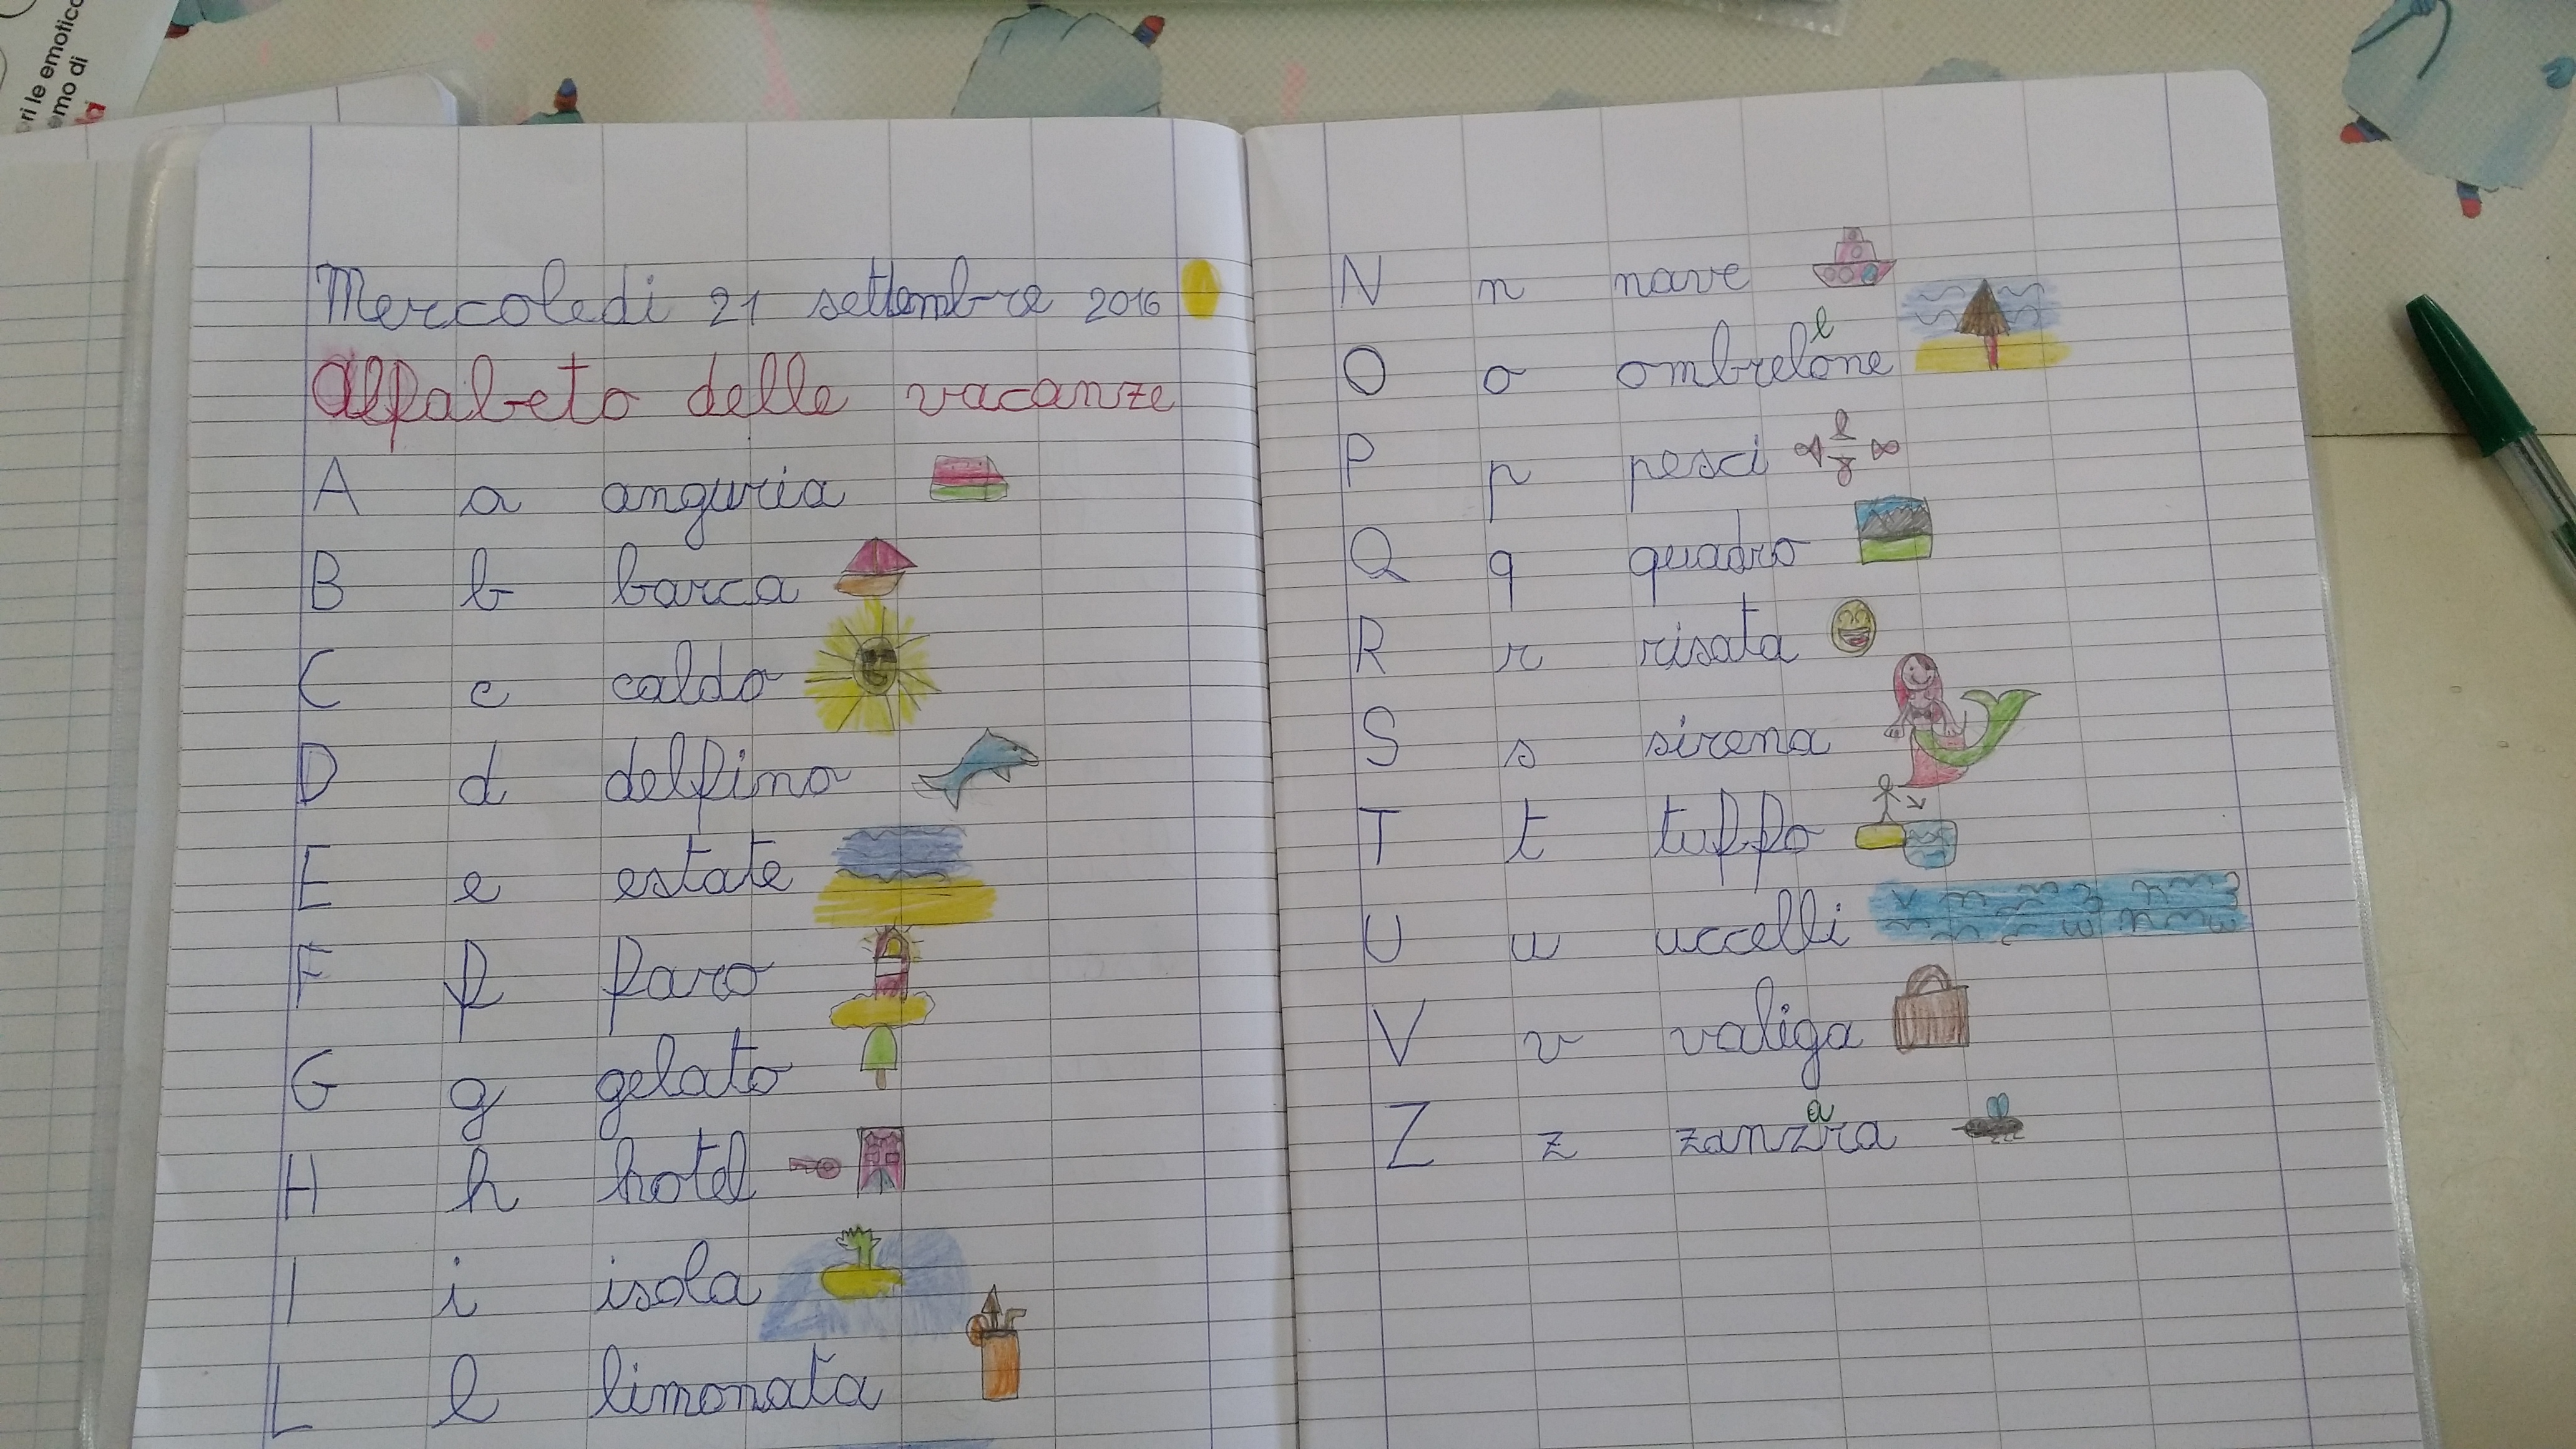 ri le emotico
emo di
la
Mercoledi 21 settembre 2016
Alfabeto delle vacanze
A a anguria
B b barca
C c caldo
D d delfino
E e estate
F f faro
G g gelato
H h hotel
I i isola
L l limonata
N n nave
l
O o ombrelone
P p pesci
Q q quadro
R r risata
S s sirena
T t tuffo
U u uccelli
V v valiga
a
Z z zanzra